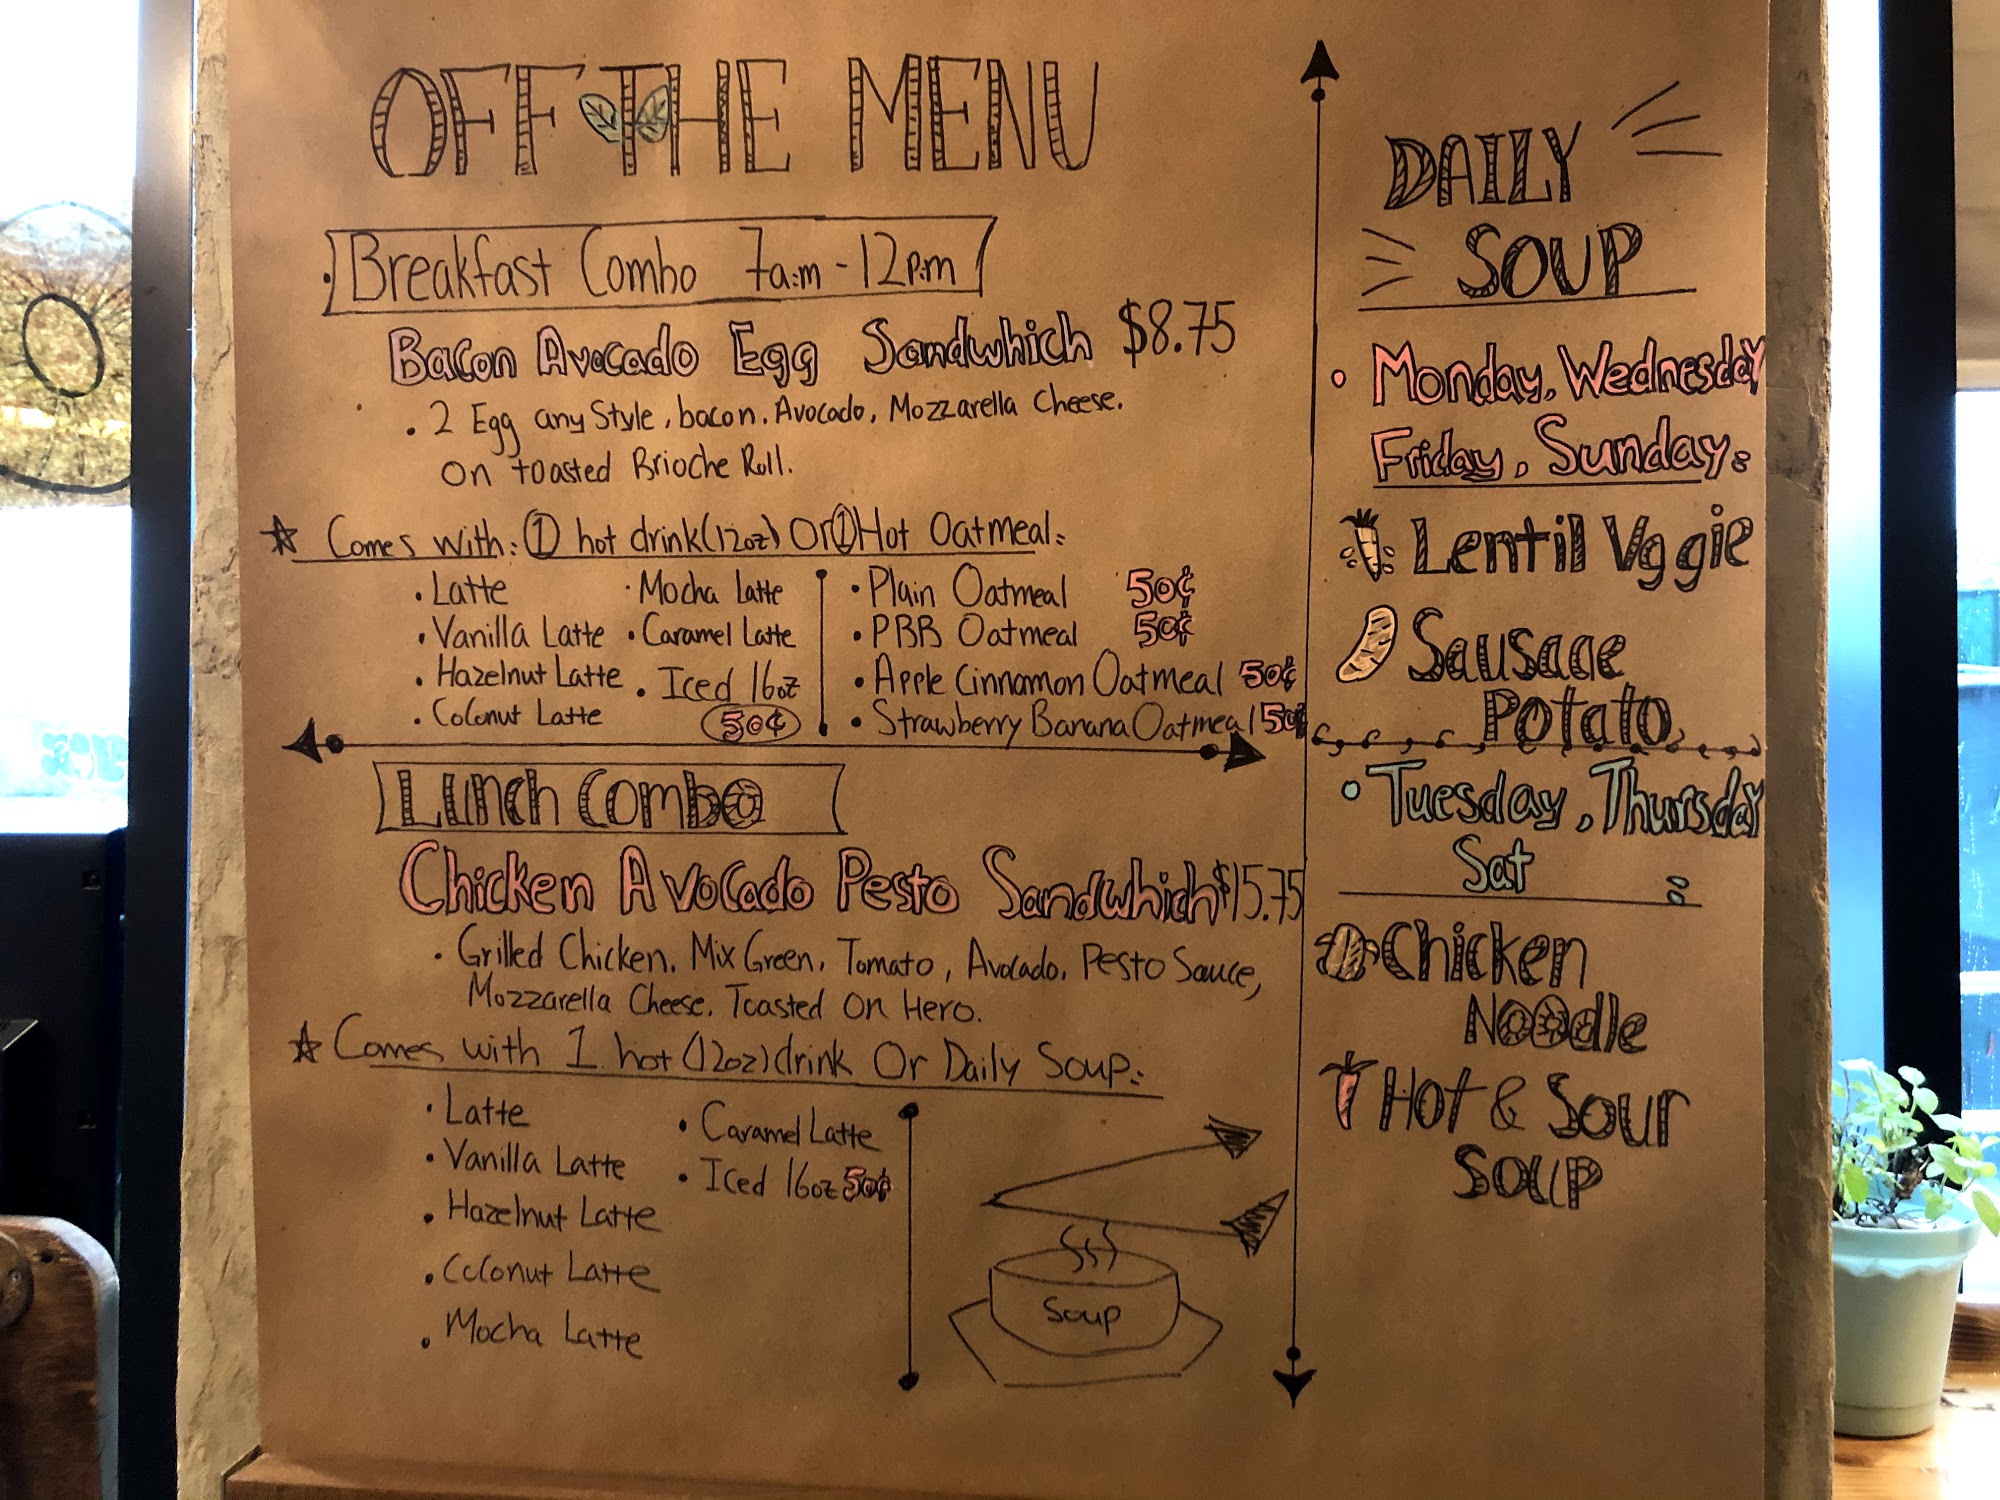 OFF THE MENU
Breakfast Combo 7a:m - 12p:m
Bacon Avocado Egg Sandwhich $8.75
• 2 Egg any Style, bacon. Avocado, Mozzarella Cheese.
On toasted Brioche Roll.
☆ Comes with: ① hot drink (12oz) Or ① Hot Oatmeal:
• Latte • Mocha Latte
• Vanilla Latte • Caramel Latte
• Hazelnut Latte • Iced 16oz
• Coconut Latte 50¢
• Plain Oatmeal 50¢
• PBB Oatmeal 50¢
• Apple Cinnamon Oatmeal 50¢
• Strawberry Banana Oatmeal 50¢
Lunch Combo
Chicken Avocado Pesto Sandwhich $15.75
• Grilled Chicken. Mix Green, Tomato, Avocado. Pesto Sauce,
Mozzarella Cheese. Toasted On Hero.
☆ Comes with 1 hot (12oz) drink Or Daily Soup:
• Latte
• Vanilla Latte
• Hazelnut Latte
• Coconut Latte
• Mocha Latte
• Caramel Latte
• Iced 16oz 50¢
Soup
DAILY
SOUP
• Monday, Wednesday
Friday, Sunday:
Lentil Vggie
Sausage
Potato
• Tuesday, Thursday
Sat :
Chicken
Noodle
Hot & Sour
Soup